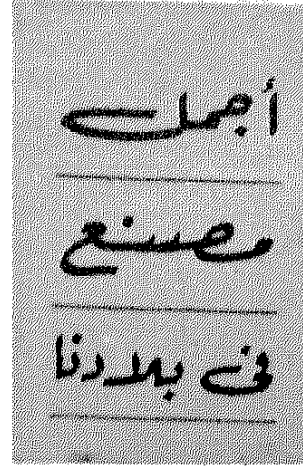 أجمل
مصنع
فى بلادنا